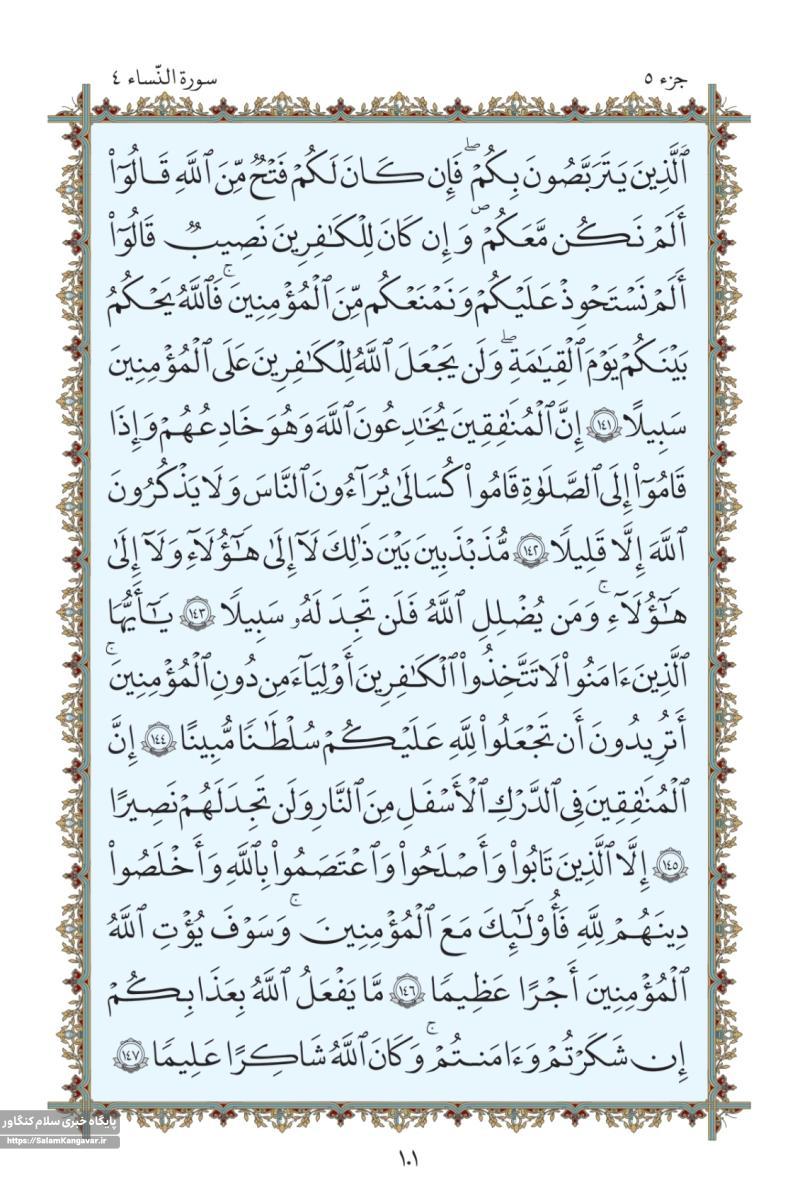 جزء ٥
سورة النّساء ٤
ٱلَّذِينَ يَتَرَبَّصُونَ بِكُمْ ۖ فَإِن كَانَ لَكُمْ فَتْحٌ مِّنَ ٱللَّهِ قَالُوٓا۟
أَلَمْ نَكُن مَّعَكُمْ ۖ وَإِن كَانَ لِلْكَـٰفِرِينَ نَصِيبٌ قَالُوٓا۟
أَلَمْ نَسْتَحْوِذْ عَلَيْكُمْ وَنَمْنَعْكُم مِّنَ ٱلْمُؤْمِنِينَ ۚ فَٱللَّهُ يَحْكُمُ
بَيْنَكُمْ يَوْمَ ٱلْقِيَـٰمَةِ ۖ وَلَن يَجْعَلَ ٱللَّهُ لِلْكَـٰفِرِينَ عَلَى ٱلْمُؤْمِنِينَ
سَبِيلًا ١٤١ إِنَّ ٱلْمُنَـٰفِقِينَ يُخَـٰدِعُونَ ٱللَّهَ وَهُوَ خَادِعُهُمْ وَإِذَا
قَامُوٓا۟ إِلَى ٱلصَّلَوٰةِ قَامُوا۟ كُسَالَىٰ يُرَآءُونَ ٱلنَّاسَ وَلَا يَذْكُرُونَ
ٱللَّهَ إِلَّا قَلِيلًا ١٤٢ مُّذَبْذَبِينَ بَيْنَ ذَٰلِكَ لَآ إِلَىٰ هَـٰٓؤُلَآءِ وَلَآ إِلَىٰ
هَـٰٓؤُلَآءِ ۚ وَمَن يُضْلِلِ ٱللَّهُ فَلَن تَجِدَ لَهُۥ سَبِيلًا ١٤٣ يَـٰٓأَيُّهَا
ٱلَّذِينَ ءَامَنُوا۟ لَا تَتَّخِذُوا۟ ٱلْكَـٰفِرِينَ أَوْلِيَآءَ مِن دُونِ ٱلْمُؤْمِنِينَ ۚ
أَتُرِيدُونَ أَن تَجْعَلُوا۟ لِلَّهِ عَلَيْكُمْ سُلْطَـٰنًا مُّبِينًا ١٤٤ إِنَّ
ٱلْمُنَـٰفِقِينَ فِى ٱلدَّرْكِ ٱلْأَسْفَلِ مِنَ ٱلنَّارِ وَلَن تَجِدَ لَهُمْ نَصِيرًا
١٤٥ إِلَّا ٱلَّذِينَ تَابُوا۟ وَأَصْلَحُوا۟ وَٱعْتَصَمُوا۟ بِٱللَّهِ وَأَخْلَصُوا۟
دِينَهُمْ لِلَّهِ فَأُو۟لَـٰٓئِكَ مَعَ ٱلْمُؤْمِنِينَ ۚ وَسَوْفَ يُؤْتِ ٱللَّهُ
ٱلْمُؤْمِنِينَ أَجْرًا عَظِيمًا ١٤٦ مَّا يَفْعَلُ ٱللَّهُ بِعَذَابِكُمْ
إِن شَكَرْتُمْ وَءَامَنتُمْ ۚ وَكَانَ ٱللَّهُ شَاكِرًا عَلِيمًا ١٤٧
پایگاه خبری سلام کنگاور
https://SalamKangavar.ir
١٠١